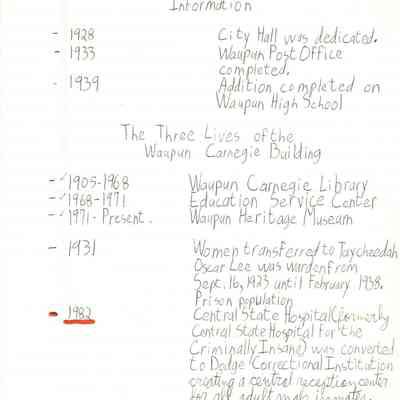 Information
- 1928 City Hall was dedicated.
- 1933 Waupun Post Office
completed.
- 1939 Addition completed on
Waupun High School
The Three Lives of the
Waupun Carnegie Building
- ✓1905-1968 Waupun Carnegie Library
- ✓1968-1971 Education Service Center
- ✓1971-Present. Waupun Heritage Museum
- 1931 Women transferred to Taycheedah
Oscar Lee was warden from
Sept. 16, 1923 until February 1938.
Prison population
- 1982 Central State Hospital (formerly
Central State Hospital for the
Criminally Insane) was converted
to Dodge Correctional Institution
creating a central reception center
for all adult male inmates.